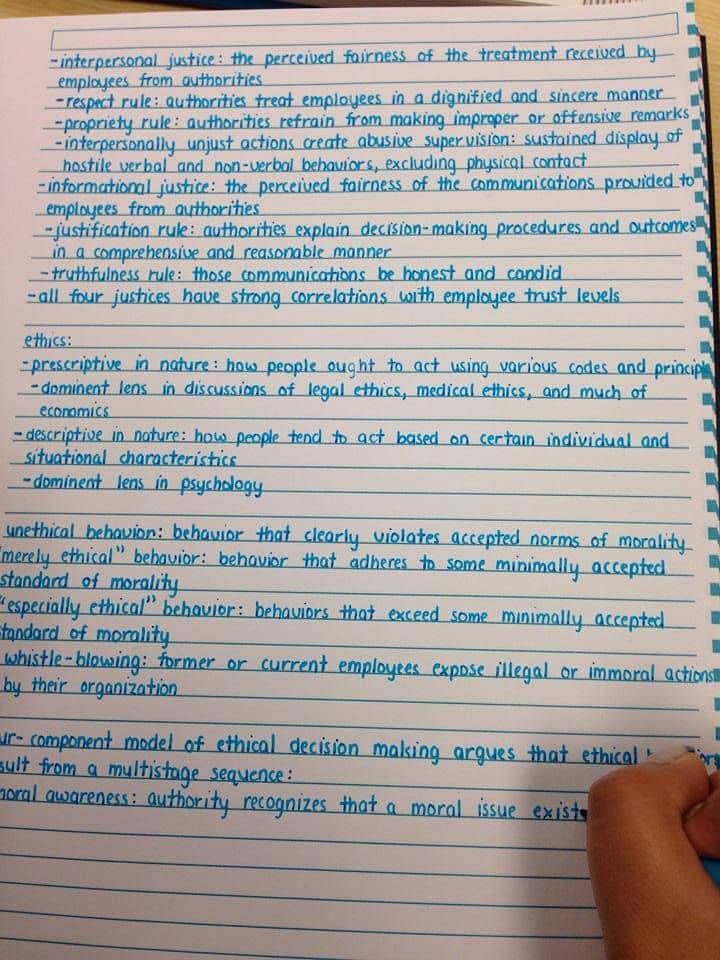 -interpersonal justice: the perceived fairness of the treatment received by
employees from authorities
-respect rule: authorities treat employees in a dignified and sincere manner
-propriety rule: authorities refrain from making improper or offensive remarks
-interpersonally unjust actions create abusive supervision: sustained display of
hostile verbal and non-verbal behaviors, excluding physical contact
-informational justice: the perceived fairness of the communications provided to
employees from authorities
-justification rule: authorities explain decision-making procedures and outcomes
in a comprehensive and reasonable manner
-truthfulness rule: those communications be honest and candid
-all four justices have strong correlations with employee trust levels
ethics:
-prescriptive in nature: how people ought to act using various codes and principle
-dominent lens in discussions of legal ethics, medical ethics, and much of
economics
-descriptive in nature: how people tend to act based on certain individual and
situational characteristics
-dominent lens in psychology
unethical behavior: behavior that clearly violates accepted norms of morality
"merely ethical" behavior: behavior that adheres to some minimally accepted
standard of morality
"especially ethical" behavior: behaviors that exceed some minimally accepted
tandard of morality
whistle-blowing: former or current employees expose illegal or immoral actions
by their organization
ur-component model of ethical decision making argues that ethical
sult from a multistage sequence:
noral awareness: authority recognizes that a moral issue exist